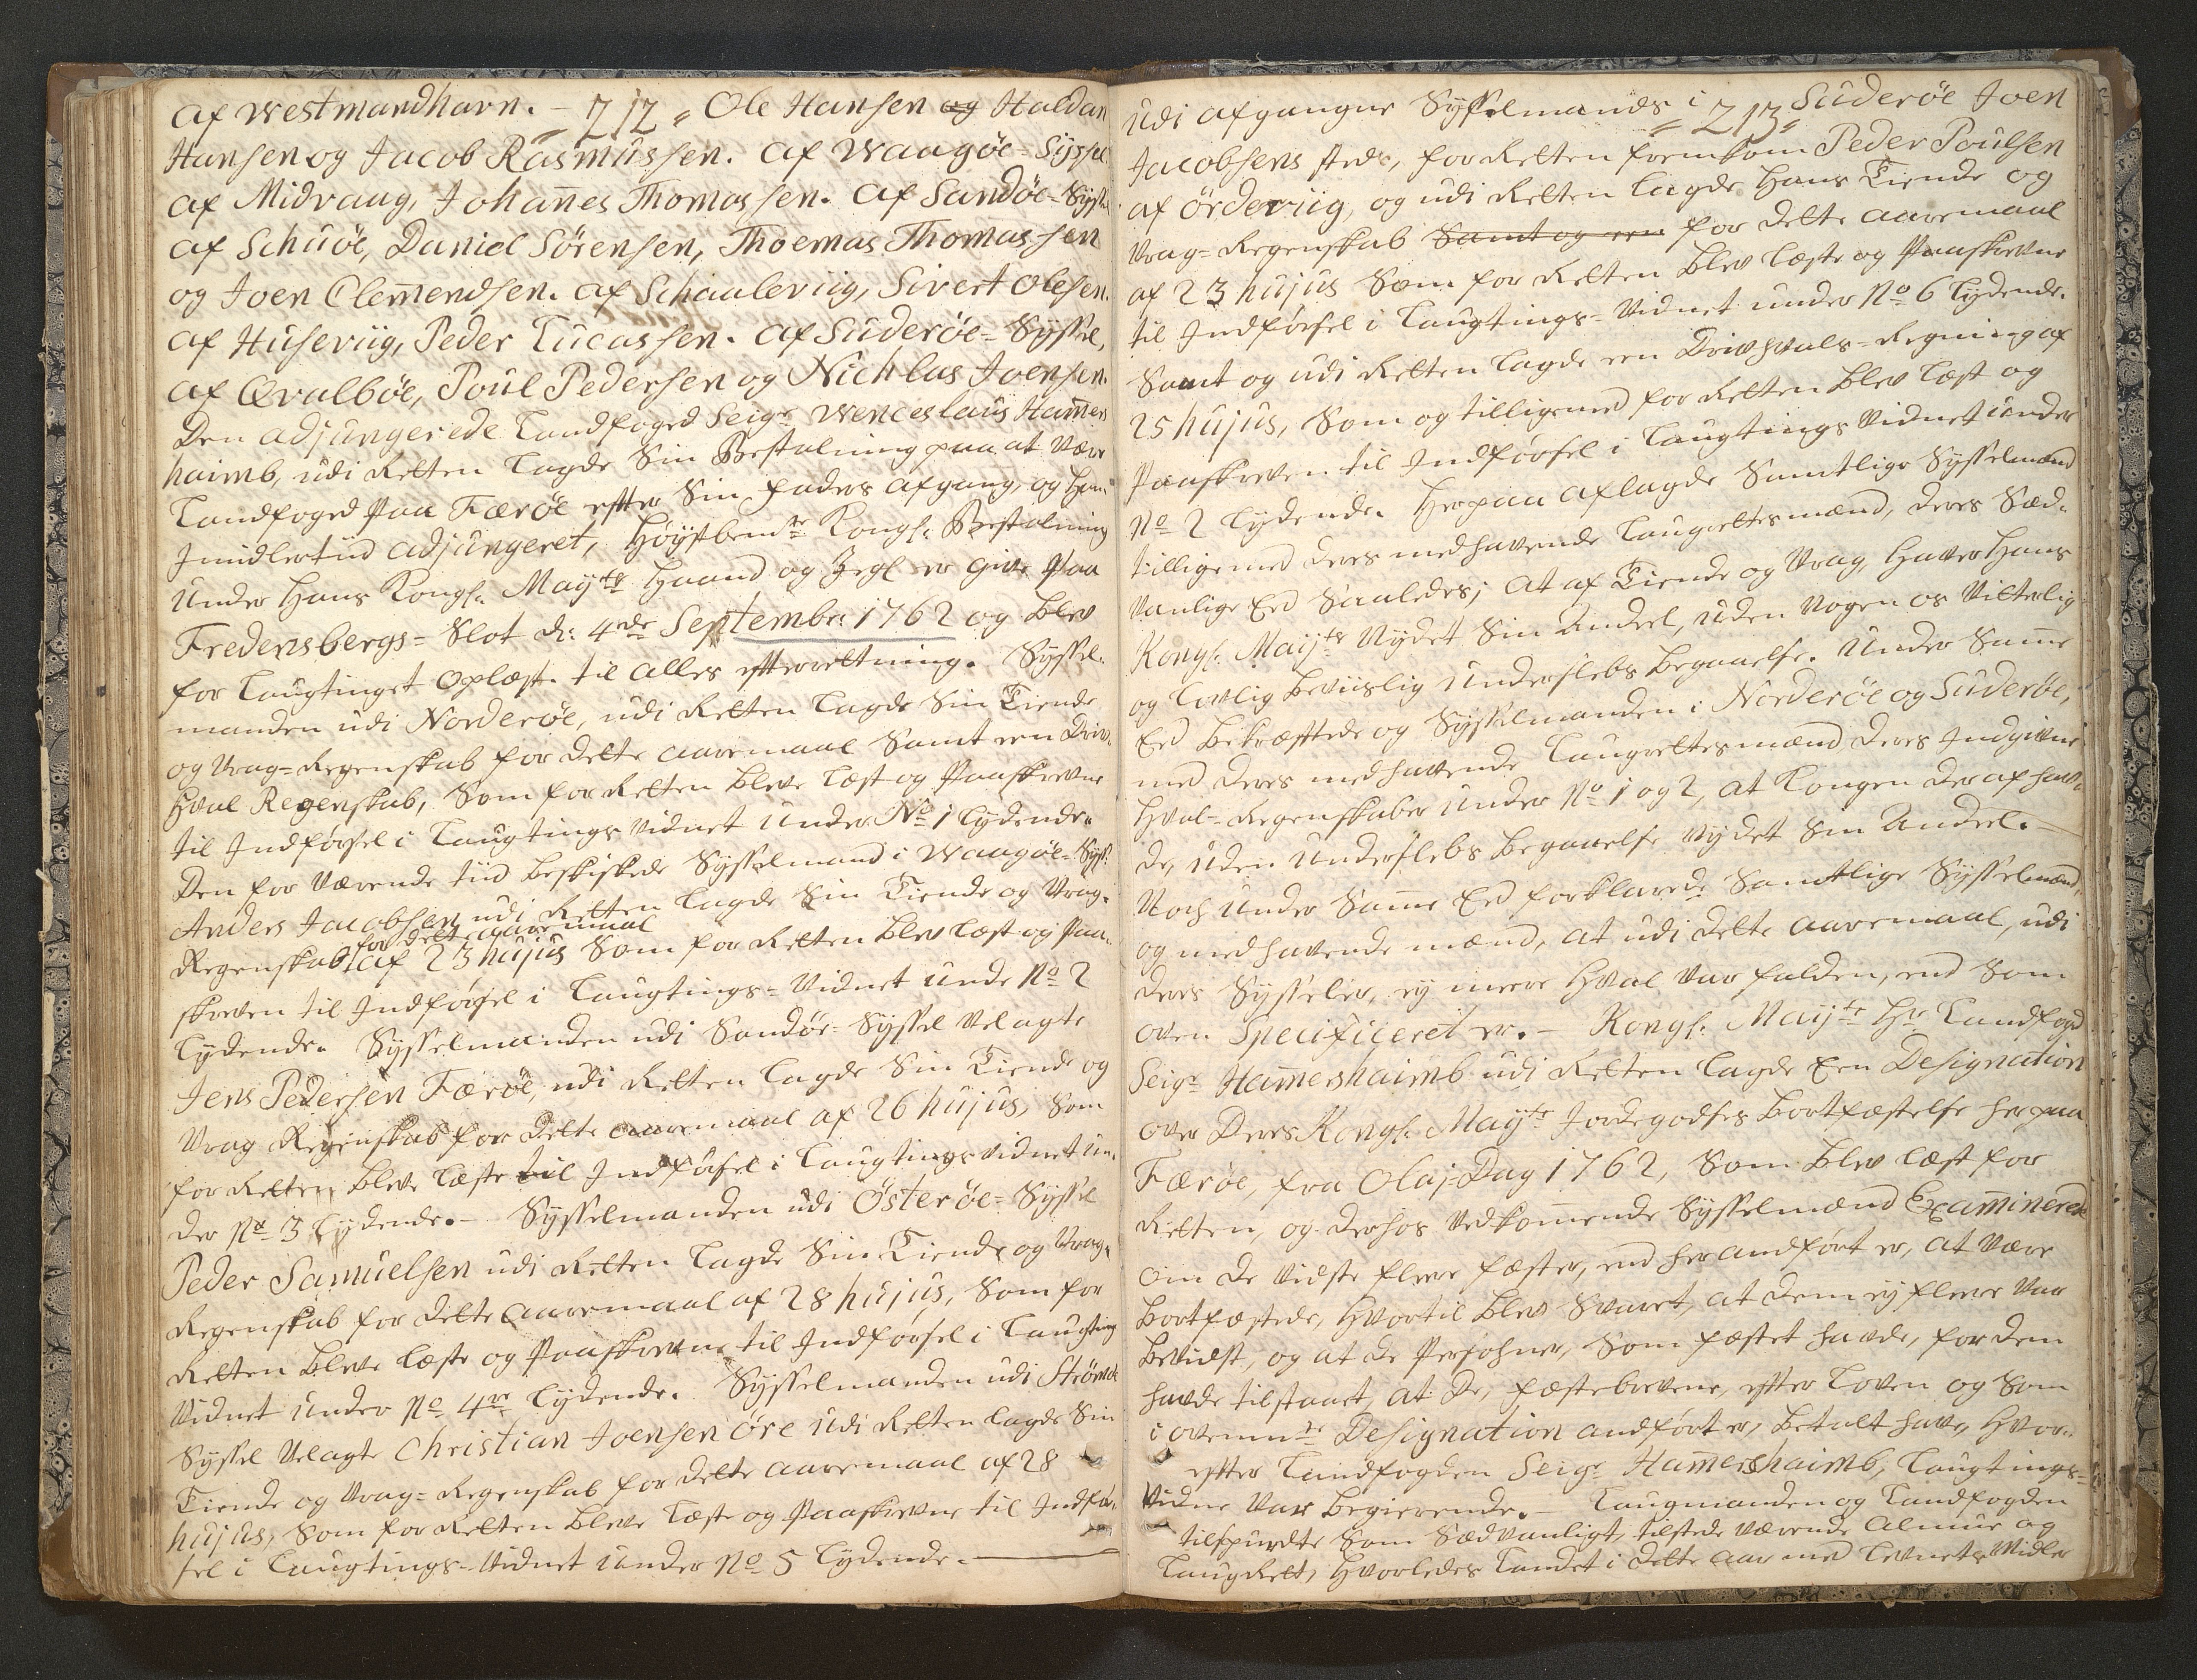 af Westmandhavn. – Ole Hansen og Haldan
"212"
Hansen og Jacob Rasmussen. af Waagöe-Sÿssel
af Midvaag, Johan̄es Thomassen. af Sandöe-Sÿssel
af Schuöe, Daniel Sörensen, Thoemas Thomassen
og Joen Clem̄endsen. af Schaaleviig, Sivert Olesen.
af Huseviig, Peder Lucassen. af Suderöe-Sÿssel,
af Qvalböe, Poul Pedersen og Nichlas Joensen.
Den adjungerede Landfoged Seigr. Wenceslaus Ham̄ers
haimb, udi Retten lagde Sin Bestalning paa at være
Landfoged paa Færöe efter Sin Faders afgang, og ham
Imidlertiid adjungeret, Höÿstbemte Kongl: Bestalning
under Hans Kongl: Mayts Haand og Zegl er given paa
Fredensbergs-Slot d: 4de Septembr: 1762 og blev
for Laugtinget oplæst til alles efterretning. Sÿssel-
manden udi Norderöe, udi Retten lagde Sin Tiende
og Vrag-Regenskab for dette aaremaal samt een Driv-
hval Regenskab, som for Retten bleve læst og Paaskrevne
til Indförsel i Laugtings Vidnet under No 1 lÿdende.
Den for værende tiid beskikede Sÿsselmand i Waagöe-Sÿss:
Anders Jacobsen udi Retten lagde Sin Tiende og Vrag-
for dette aaremaal
Regenskab af 23 hujus som for Retten blev læst og Paa-
skreven til Indförsel i Laugtings-Vidnet unde No 2
lÿdende. Sÿsselmanden udi Sandöe-Sÿssel Velagte
Jens Pedersen Færöe, udi Retten lagde Sin Tiende og
Vrag Regenskab for dette aaremaal af 26 hujus, som
for Retten bleve læste til Indförsel i Laugtings vidnet un-
der No 3 lÿdende. – Sÿsselmanden udi Österöe-Sÿssel
Peder Samuelsen udi Retten lagde Sin Tiende og Vrag-
Regenskab for dette aaremaal af 28 hujus, som for
Retten bleve læste og Paaskrevne til Indförsel i Laugting
Vidnet under No 4re lÿdende. Sÿsselmanden udi Ströemöe
Sÿssel Velagte Christian Joensen Öre udi Retten lagde Sin
Tiende og Vrag-Regenskab for dette aaremaal af 28
hujus, som for Retten bleve læste og Paaskrevne til Indför-
sel i Laugtings-Vidnet under No 5 lÿdende. –
udi afgangne Sÿsselmands i Suderöe Joen
"213"
Jacobsens sted, for Retten fremkom Peder Poulsen
af Ördeviig, og udi Retten lagde Hans Tiende og
Vrag-Regenskab Samt og een for dette aaremaal
af 23 hujus som for Retten blev læste og Paaskrevne
til Indförsel i Laugtings-Vidnet under No 6 lÿdende.
Samt og udi Retten lagde een Drivhvals-Regning af
25 hujus, som og tilligemed for Retten blev læst og
Paaskreven til Indförsel i Laugtings Vidnet under
No 2 lÿdende. Herpaa aflagde samtlige Sÿsselmænd
tilligemed deres medhavende Laugrettesmænd, deres Sæd-
vanlige Eed saaledes; at af Tiende og Vrag, haver Hans
Kongl: Mayts Nÿdet Sin Andeel, uden Nogen os Vitterlig
og lovlig beviislig Underslebs begaaelse. Under Sam̄e
Eed bekræftede og Sÿsselmanden i Norderöe og Suderöe,
med deres medhavende Laugrettesmænd deres Indgivne
Hval-Regenskaber under No 1 og 2, at Kongen deraf hav-
de, uden Underslebs begaaelse nÿdet Sin Andeel. –
Noch under Sam̄e Eed forklarede Samtlige Sÿsselmænd,
og medhavende mænd, at udi dette aaremaal, udi
deres Sÿsseler, eÿ meere Hval var falden, end som
oven Specificeret er. – Kongl: Mayts Hr Landfogd
Seigr Ham̄ershaimb udi Retten lagde Een Designation
over Deres Kongl: Mayts Jordegodses bortfæstelse herpaa
Færöe, fra Olaj-Dag 1762, som blev læst for
Retten, og derhos vedkom̄ende Sÿsselmænd Examinerede
om de vidste flere fæster, end her andfört er, at være
bortfæstede, hvortil blev Svaret, at dem eÿ flere var
bevidst, og at de Persohner, som fæstet havde, for dem
havde tilstaaet, at de, fæstebrevene, efter Loven og som
i ovenmte Designation andfört er, betalt have, hvor-
efter Landfogden Seigr Ham̄ershaimb, Laugtings-
Vidne var begierende. – Laugmanden og Landfogden
tilspurdte som Sædvanligt, tilstede værende Almue og
LaugRett, hvorledes Landet i dette aar med levnets Midler